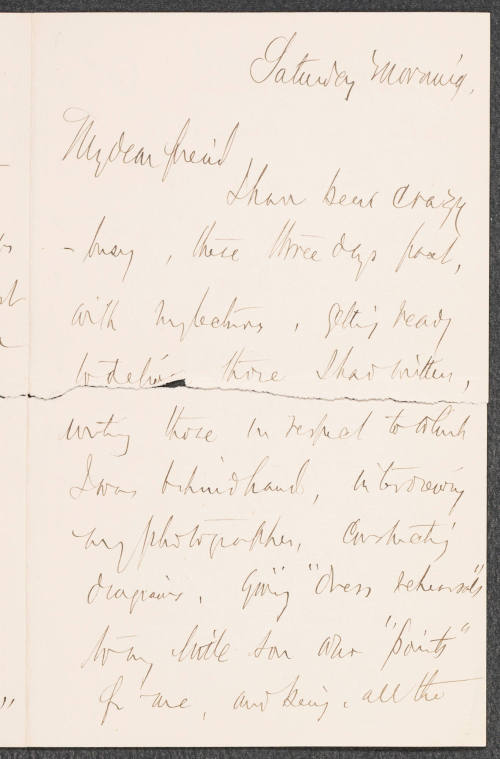 Saturday Morning,
My dear friend
I have been crazy
- busy, these three days past,
with my lectures, getting ready
to deliver those I had written,
writing those in respect to which
I was behindhand, interviewing
my photographer, constructing
diagrams, giving "dress rehearsals"
to my little son who "points"
for me, and being, all the